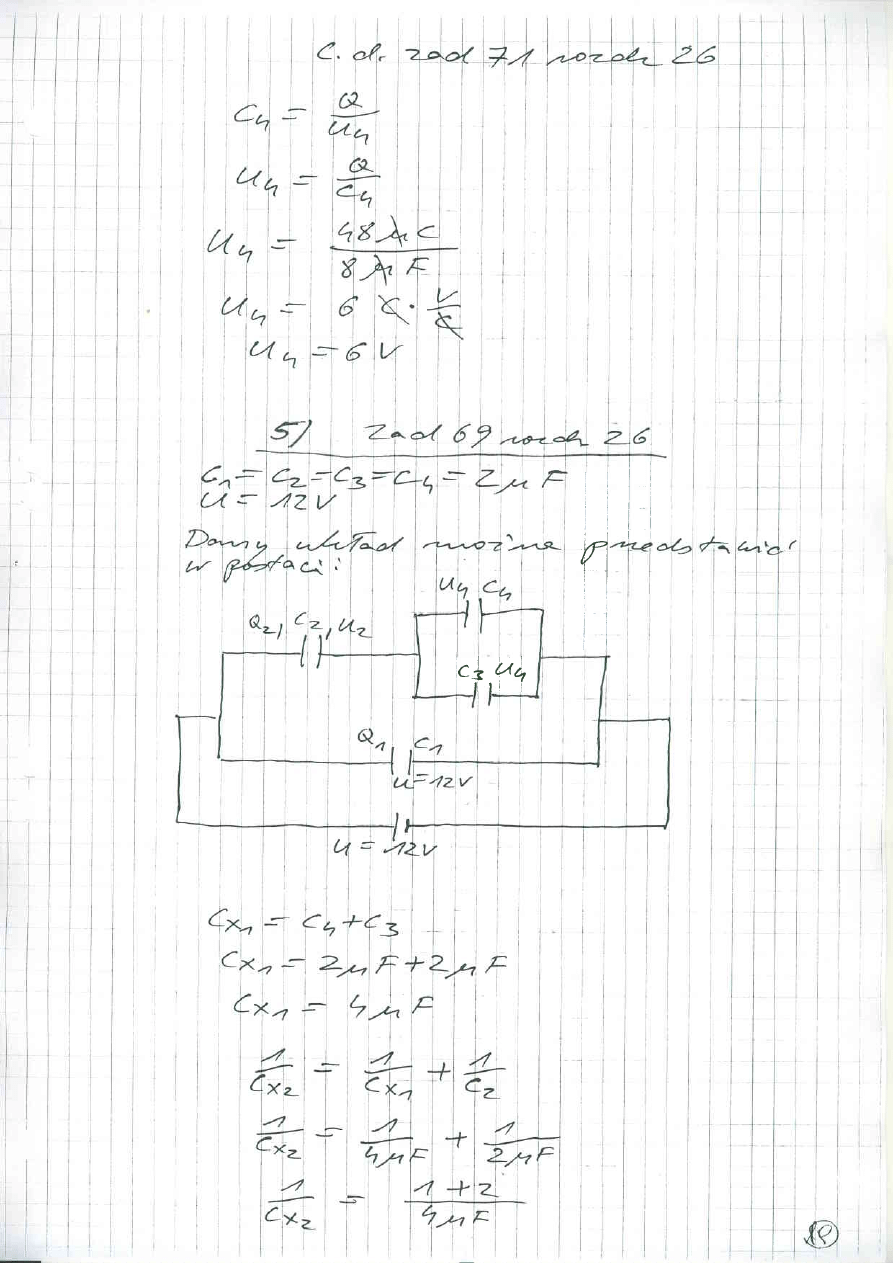 C.d. zad 71 rozdz 26
C₄ = Q/U₄
U₄ = Q/C₄
U₄ = 48 μC / 8 μF
U₄ = 6 C · V/C
U₄ = 6 V
5) Zad 69 rozdz 26
C₁ = C₂ = C₃ = C₄ = 2 μF
U = 12 V
Dany układ można przedstawić
w postaci:
U₄ C₄
Q₂, C₂, U₂
C₃ U₄
Q₁ C₁
U = 12V
U = 12V
Cx₁ = C₄ + C₃
Cx₁ = 2 μF + 2 μF
Cx₁ = 4 μF
1/Cx₂ = 1/Cx₁ + 1/C₂
1/Cx₂ = 1/4μF + 1/2μF
1/Cx₂ = 1+2 / 4μF